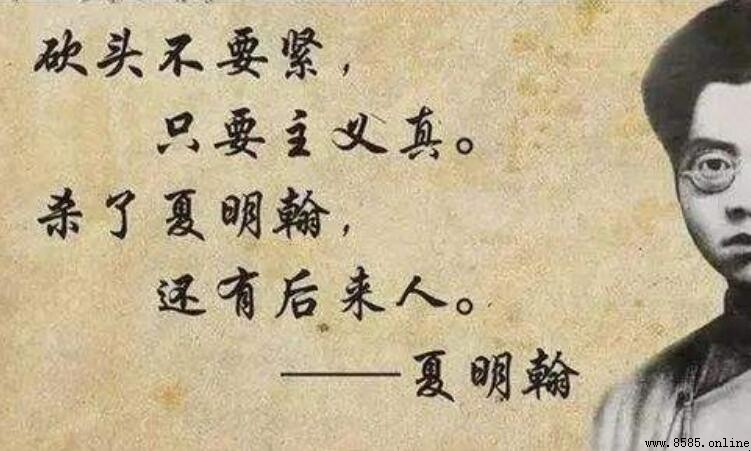 砍头不要紧，
只要主义真。
杀了夏明翰，
还有后来人。
——夏明翰
www.8585.online